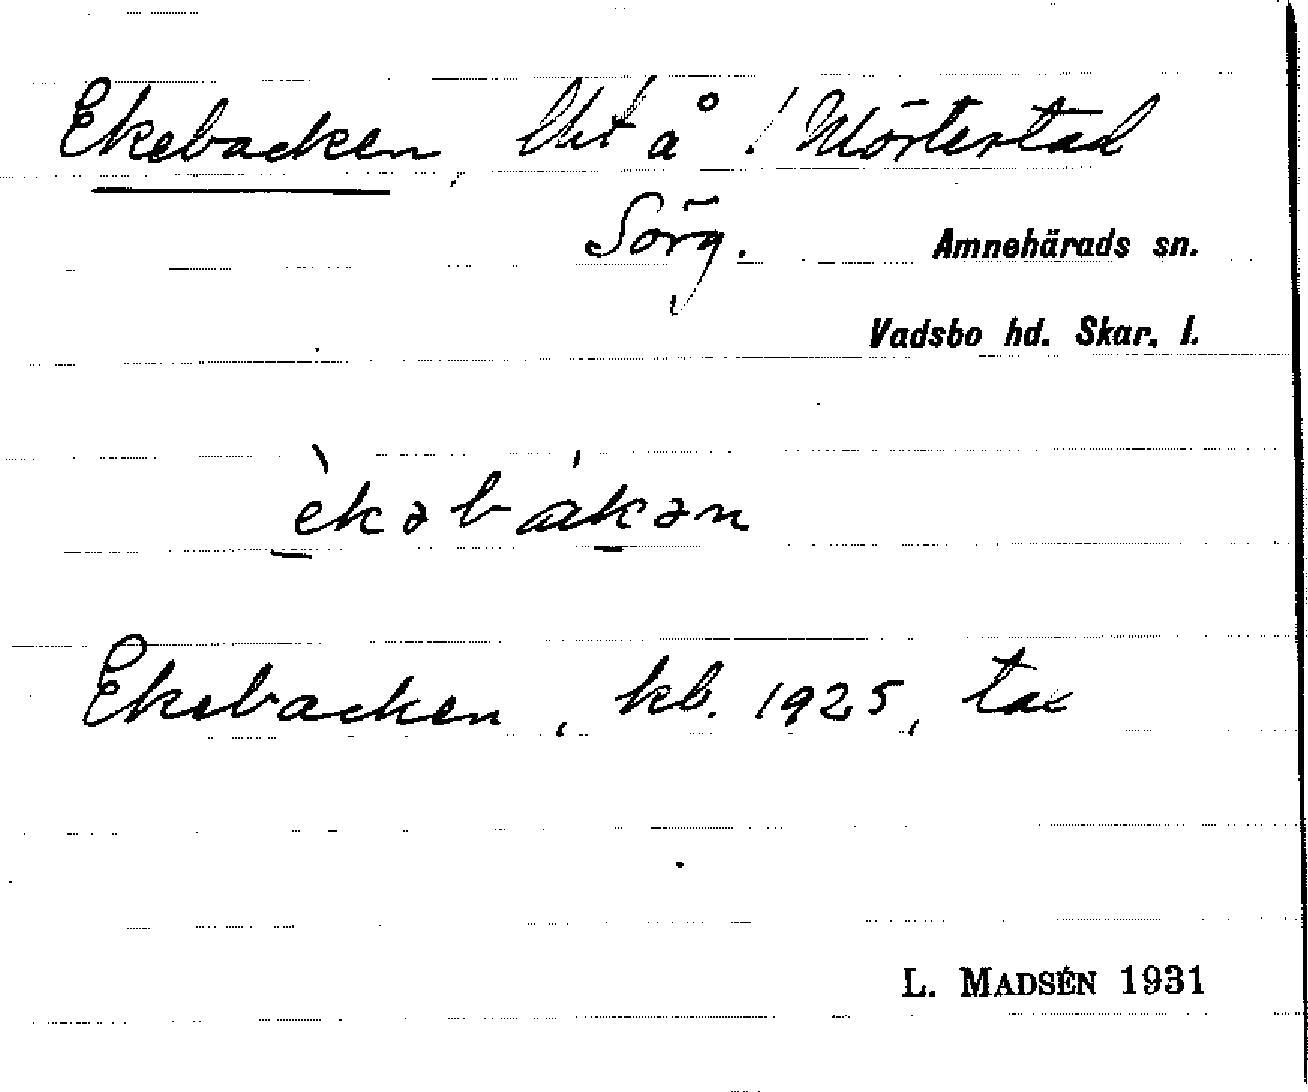 Ekebacken, lht å ! Mörterstad
Sörg.
Amnehärads sn.
Vadsbo hd. Skar. l.
èkəbákən
Ekebacken, kb. 1925, tax
L. MADSÉN 1931